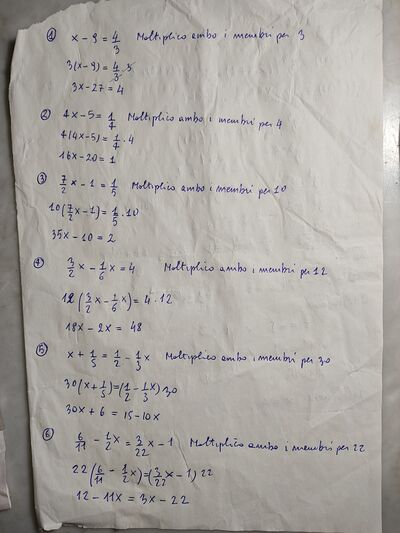 ① x - 9 = 4/3 Moltiplico ambo i membri per 3
3(x-9) = 4/3 · 3
3x - 27 = 4
② 4x - 5 = 1/4 Moltiplico ambo i membri per 4
4(4x-5) = 1/4 · 4
16x - 20 = 1
③ 7/2 x - 1 = 1/5 Moltiplico ambo i membri per 10
10(7/2 x - 1) = 1/5 · 10
35x - 10 = 2
④ 3/2 x - 1/6 x = 4 Moltiplico ambo i membri per 12
12(3/2 x - 1/6 x) = 4 · 12
18x - 2x = 48
⑤ x + 1/5 = 1/2 - 1/3 x Moltiplico ambo i membri per 30
30(x + 1/5) = (1/2 - 1/3 x) 30
30x + 6 = 15 - 10x
⑥ 6/11 - 1/2 x = 3/22 x - 1 Moltiplico ambo i membri per 22
22(6/11 - 1/2 x) = (3/22 x - 1) 22
12 - 11x = 3x - 22